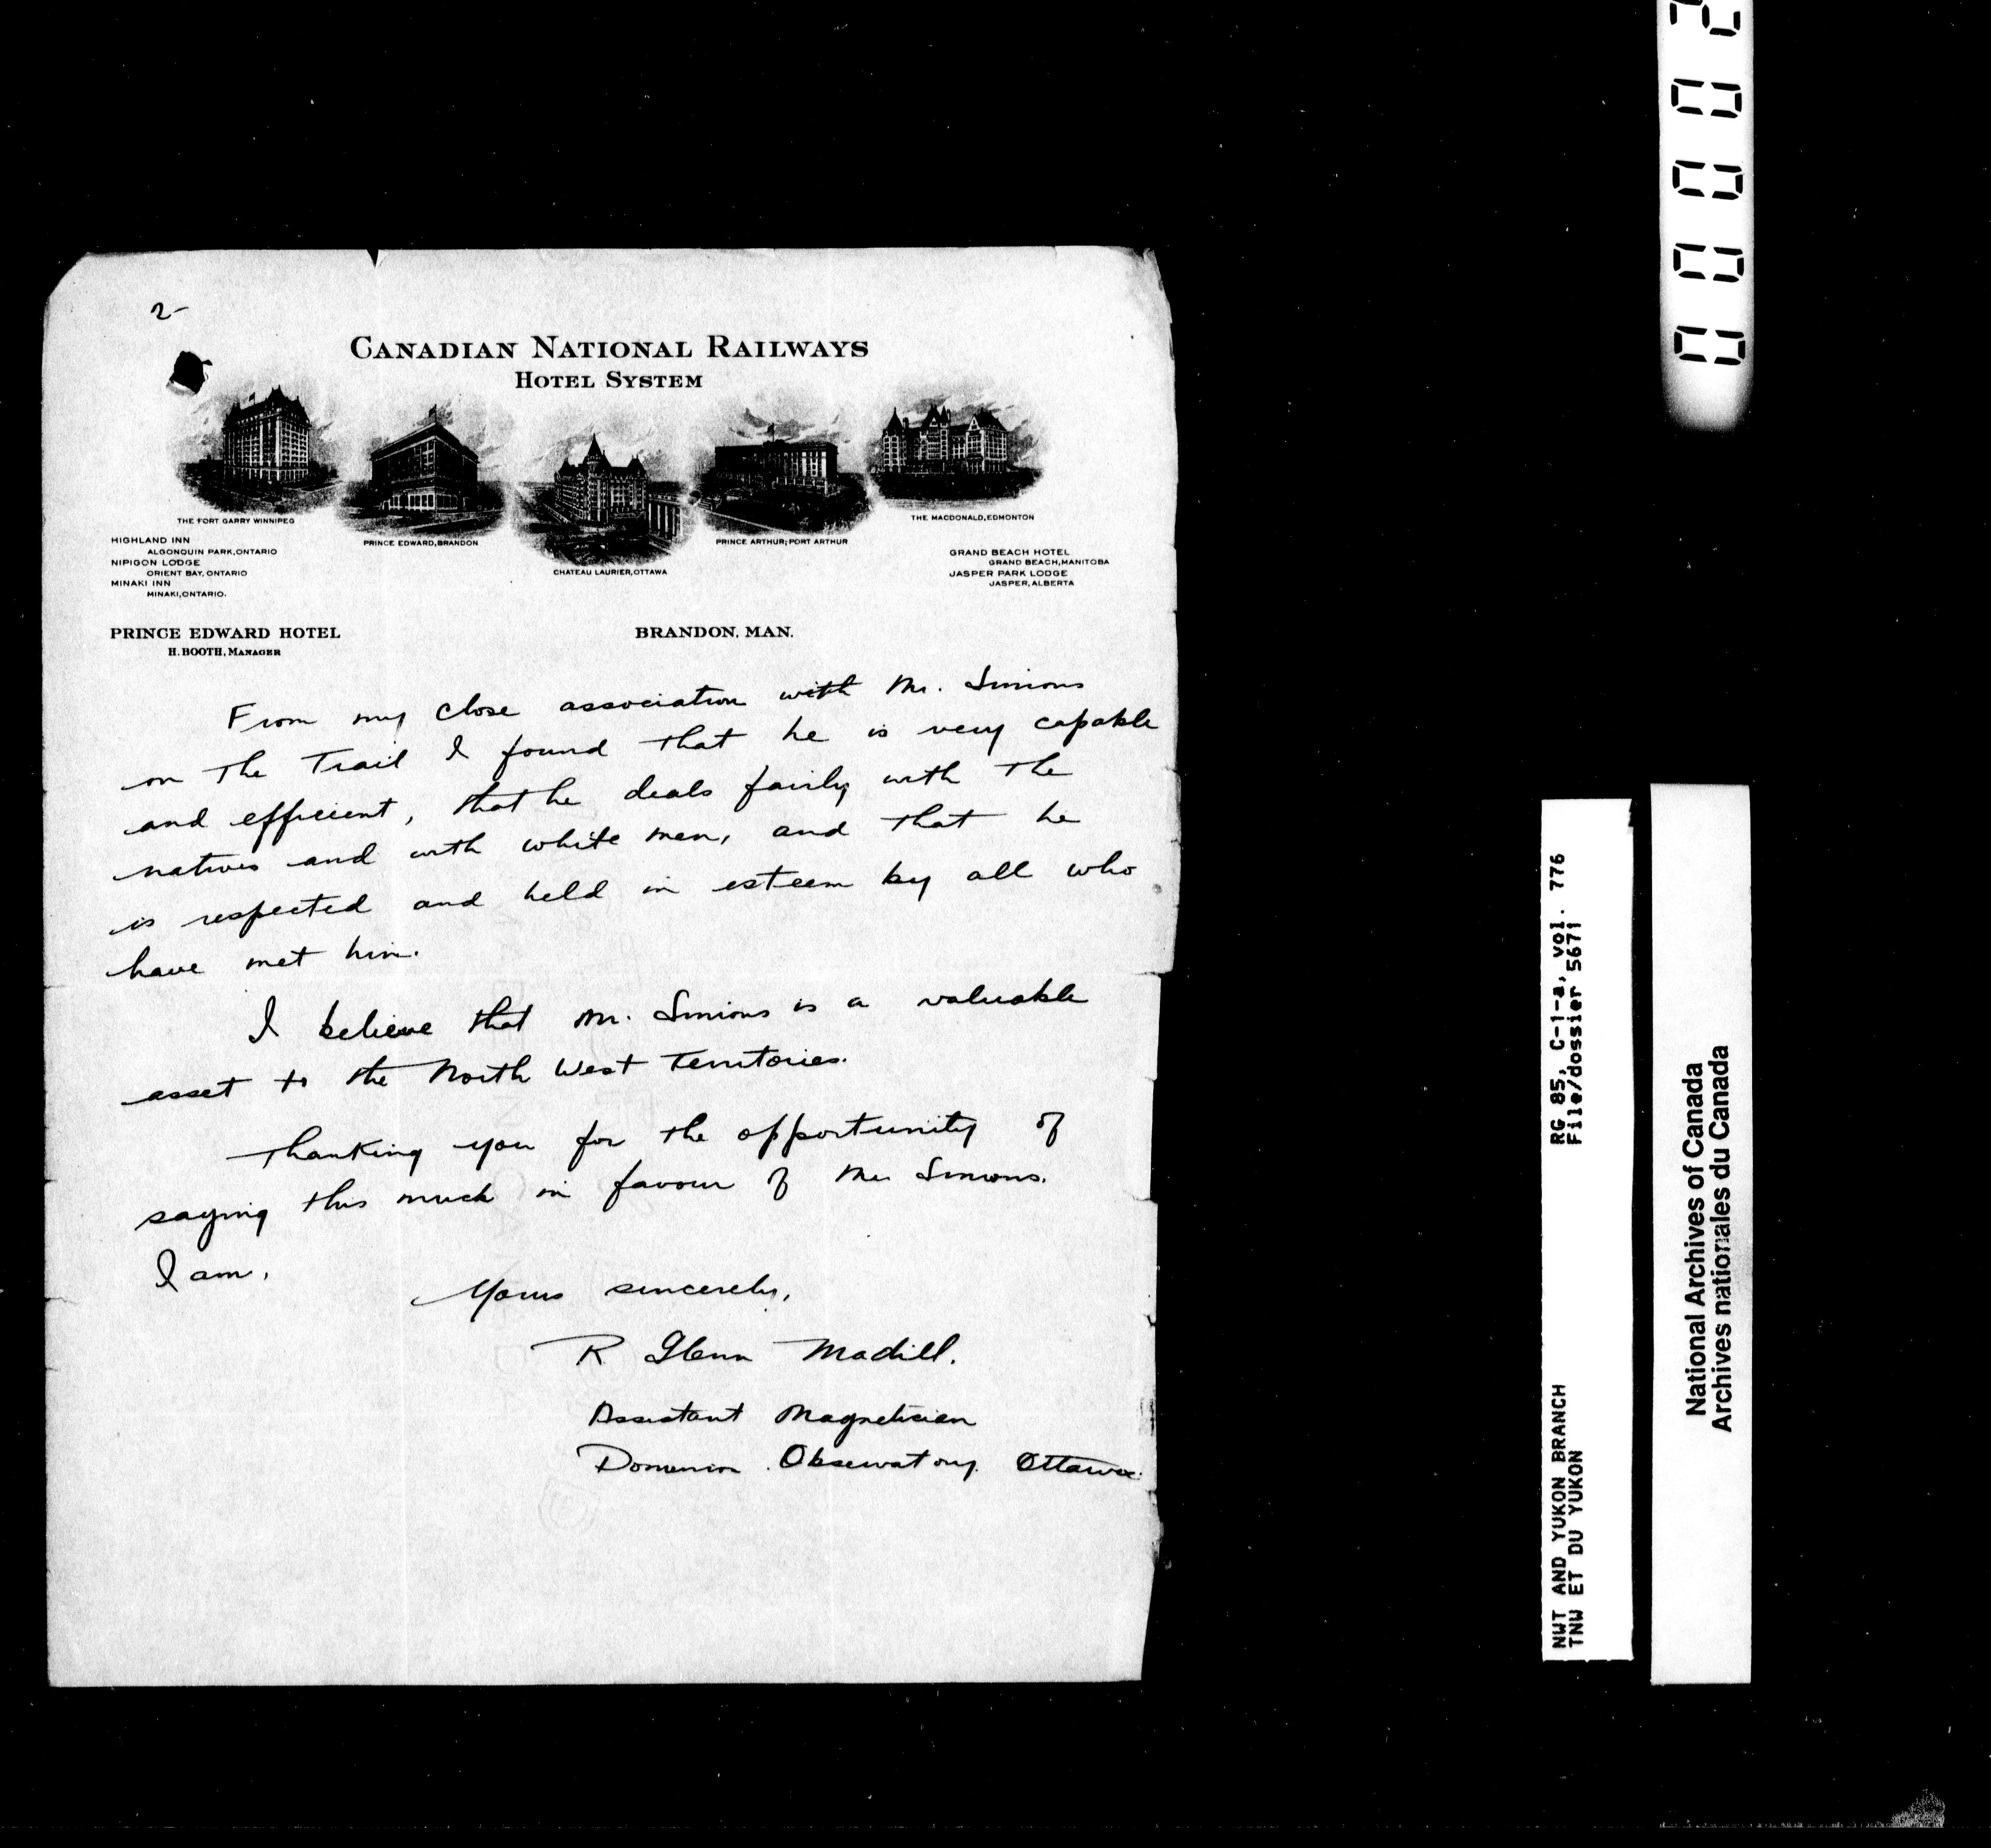 2-
CANADIAN NATIONAL RAILWAYS
HOTEL SYSTEM
THE FORT GARRY WINNIPEG
PRINCE EDWARD, BRANDON
CHATEAU LAURIER, OTTAWA
PRINCE ARTHUR; PORT ARTHUR
THE MACDONALD, EDMONTON
HIGHLAND INN
ALGONQUIN PARK, ONTARIO
NIPIGON LODGE
ORIENT BAY, ONTARIO
MINAKI INN
MINAKI, ONTARIO.
GRAND BEACH HOTEL
GRAND BEACH, MANITOBA
JASPER PARK LODGE
JASPER, ALBERTA
PRINCE EDWARD HOTEL
H. BOOTH, MANAGER
BRANDON. MAN.
From my close association with Mr. Simons
on the Trail I found that he is very capable
and efficient, that he deals fairly with the
natives and with white men, and that he
is respected and held in esteem by all who
have met him.
I believe that Mr. Simons is a valuable
asset to the North West Territories.
Thanking you for the opportunity of
saying this much in favour of Mr Simons.
I am,
Yours sincerely,
R Glenn Madill.
Assistant Magnetician
Dominion Observatory. Ottawa.
RG 85, C-1-a, vol. 776
File/dossier 5671
NWT AND YUKON BRANCH
TNW ET DU YUKON
National Archives of Canada
Archives nationales du Canada